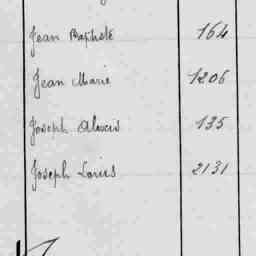 Jean Baptiste 164
Jean Marie 1206
Joseph Alexis 135
Joseph Louis 2131